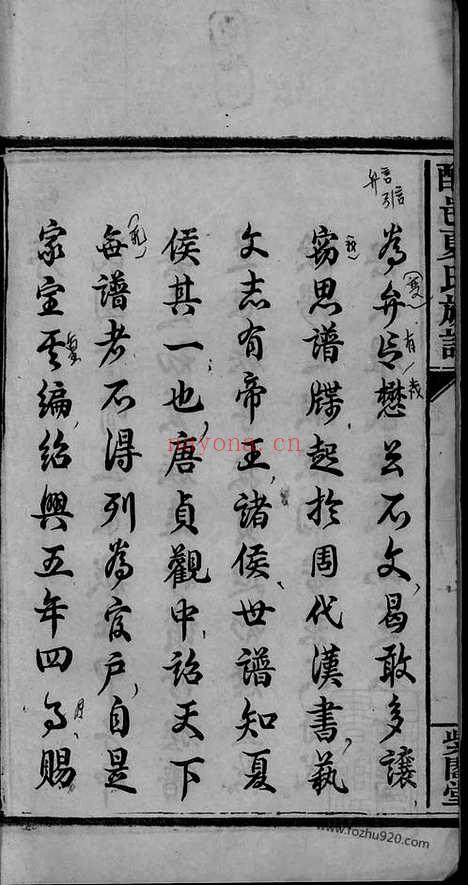 為弁言懋公不文曷敢多讓
竊思譜牒起於周代漢書藝
文志有帝王諸侯世譜知夏
侯其一也唐貞觀中詔天下
每譜者不得列為官戶自是
家室編紹興五年四月賜
夏氏族譜
紫閣堂
nayona.cn
www.fozhu920.com